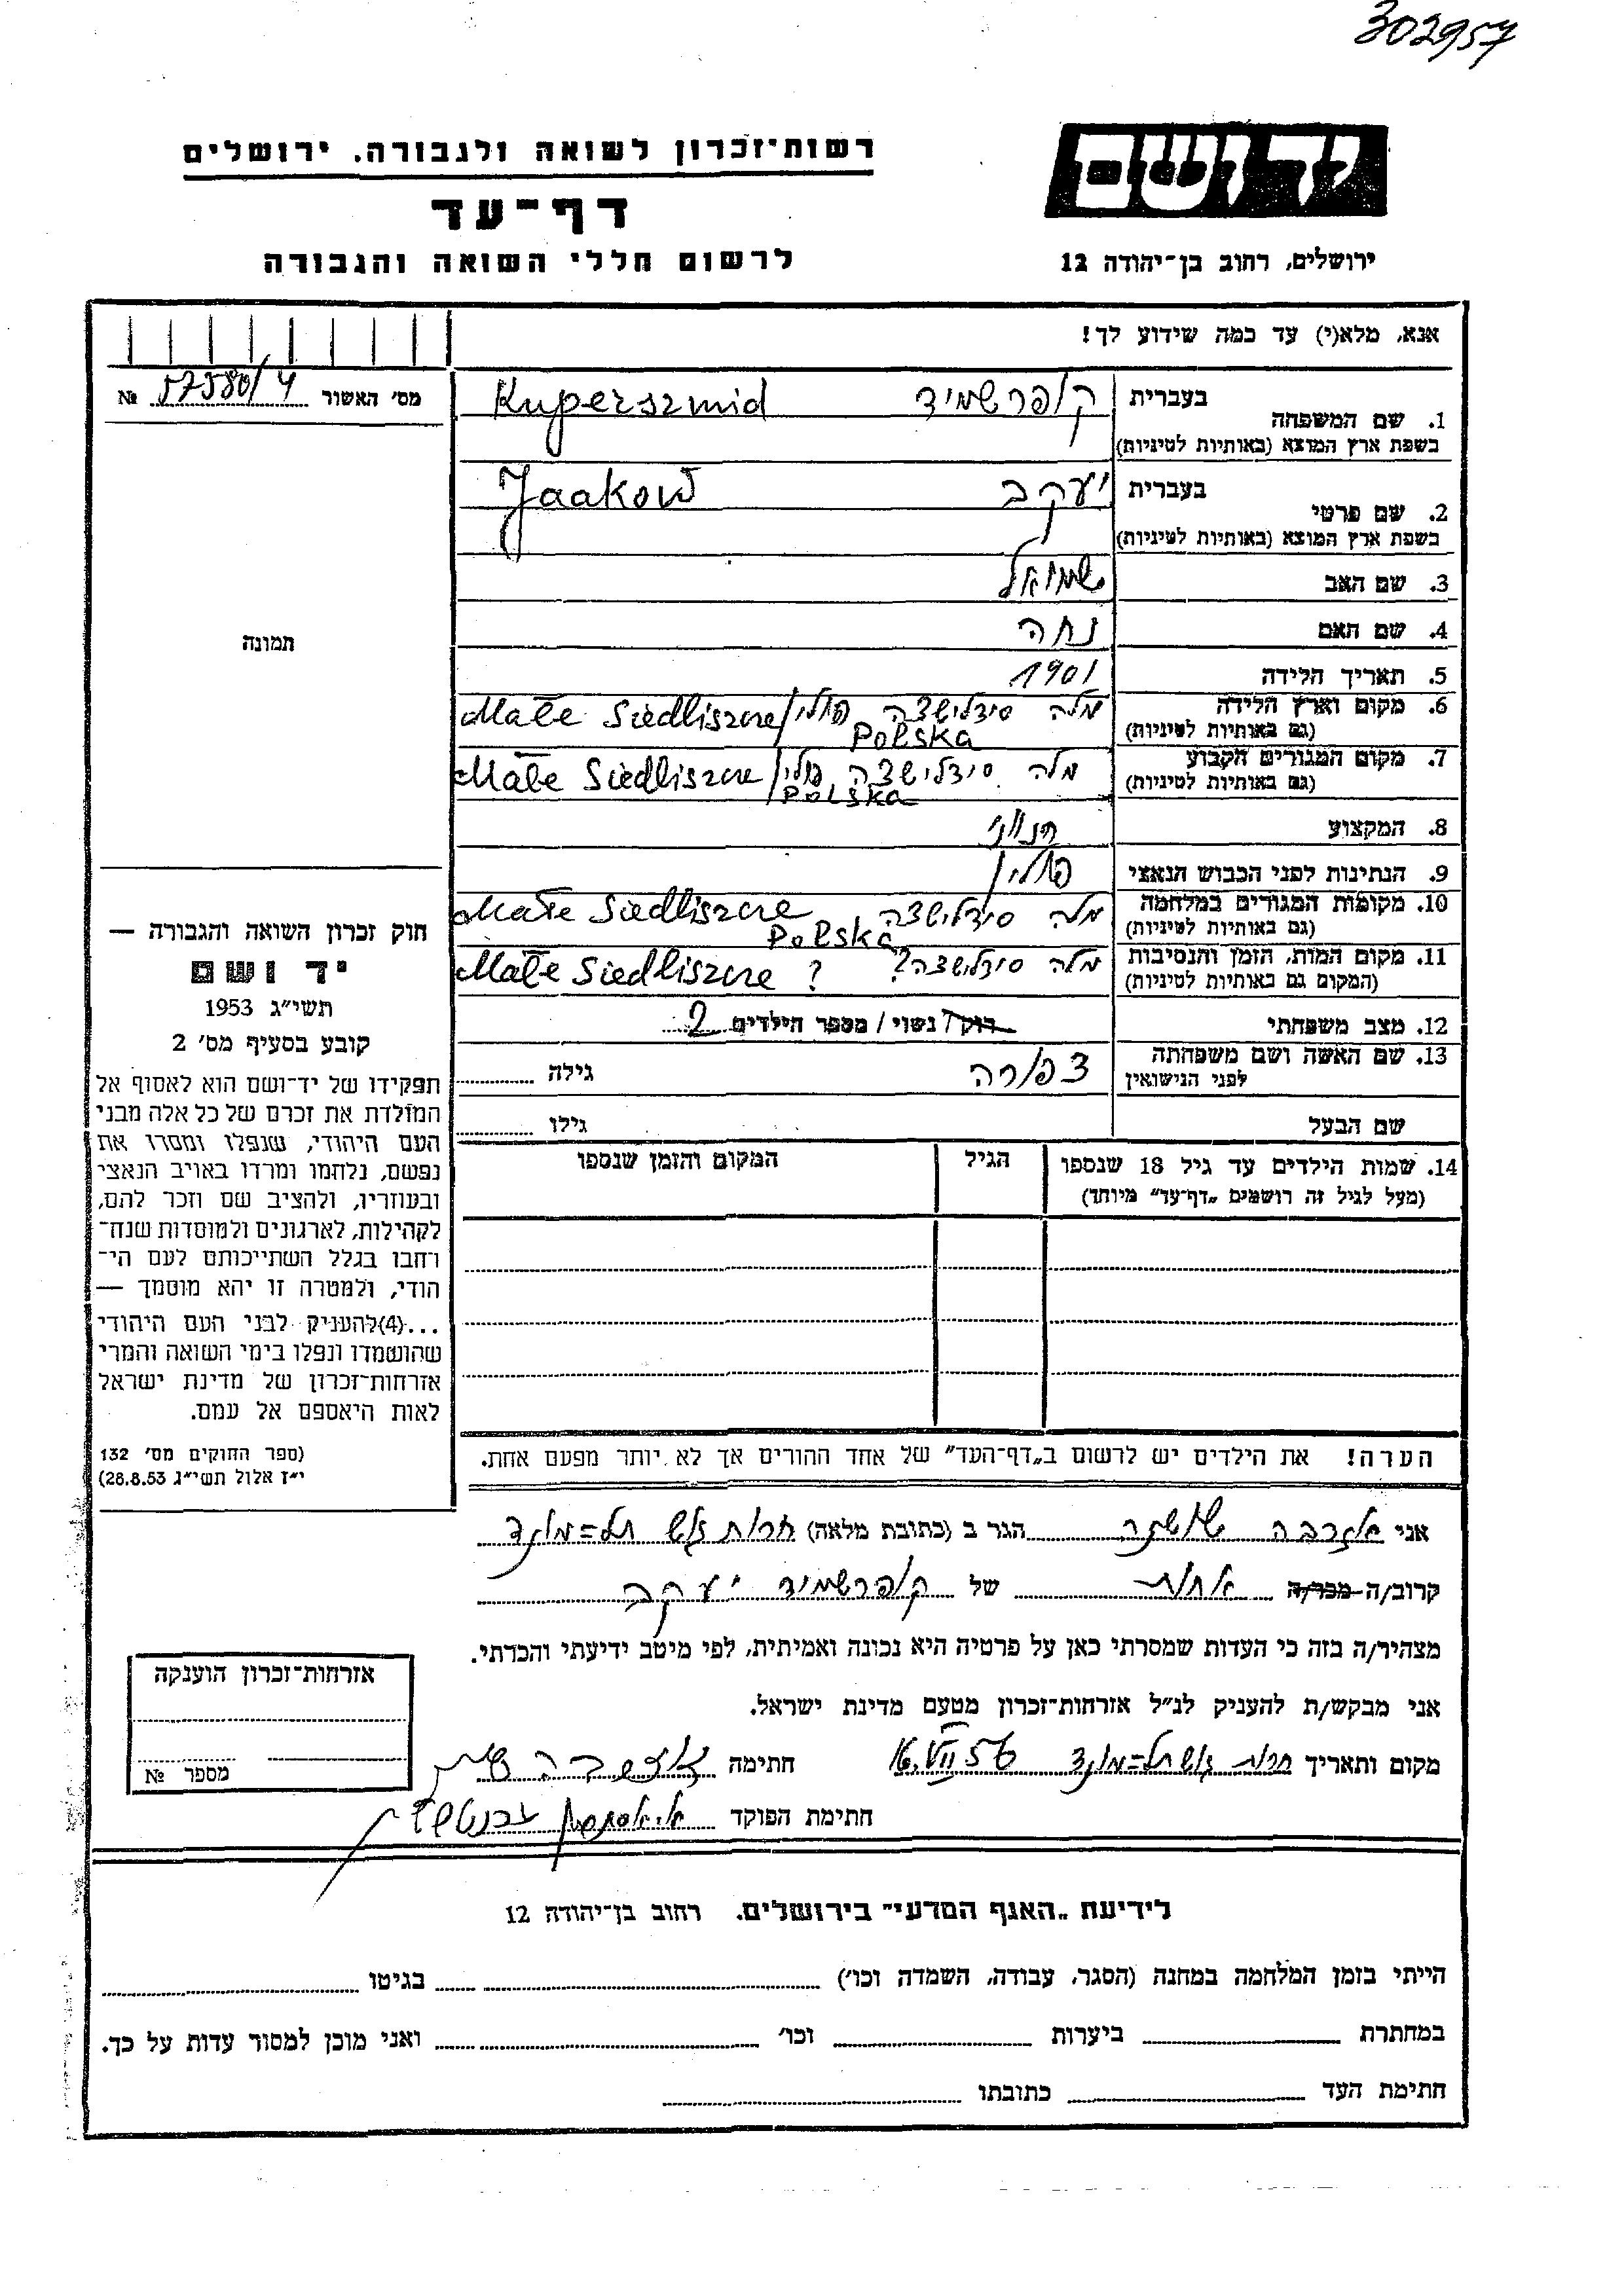 302957
רשות־זכרון לשואה ולגבורה. ירושלים
יד ושם
דף־עד
לרשום חללי השואה והגבורה
ירושלים, רחוב בן־יהודה 12
אנא, מלא(י) עד כמה שידוע לך!
מס׳ האשור 57580/4 №
1. שם המשפחה בעברית קופרשמיד Kuperszmid
בשפת ארץ המוצא (באותיות לטיניות)
2. שם פרטי בעברית יעקב Jaakow
בשפת ארץ המוצא (באותיות לטיניות)
3. שם האב שמואל
4. שם האם נחה
תמונה
5. תאריך הלידה 1901
6. מקום וארץ הלידה מלה סידלישצה פולין/Małe Siedliszcze
(גם באותיות לטיניות) Polska
7. מקום המגורים הקבוע מלה סידלישצה פולין/Małe Siedliszcze
(גם באותיות לטיניות) Polska
8. המקצוע חנווני
9. הנתינות לפני הכבוש הנאצי פולין
10. מקומות המגורים במלחמה מלה סידלישצה Małe Siedliszcze
(גם באותיות לטיניות) Polska
11. מקום המות, הזמן והנסיבות מלה סידלישצה? Małe Siedliszcze ?
(המקום גם באותיות לטיניות)
12. מצב משפחתי רווק/ נשוי / מספר הילדים 2
13. שם האשה ושם משפחתה צפורה גילה
לפני הנישואין
שם הבעל גילו
14. שמות הילדים עד גיל 18 שנספו הגיל המקום והזמן שנספו
(מעל לגיל זה רושמים „דף־עד״ מיוחד)
חוק זכרון השואה והגבורה —
יד ושם
תשי״ג 1953
קובע בסעיף מס׳ 2
תפקידו של יד־ושם הוא לאסוף אל
המולדת את זכרם של כל אלה מבני
העם היהודי, שנפלו ומסרו את
נפשם, נלחמו ומרדו באויב הנאצי
ובעוזריו, ולהציב שם וזכר להם,
לקהילות, לארגונים ולמוסדות שנח־
רחבו בגלל השתייכותם לעם הי־
הודי, ולמטרה זו יהא מוסמך —
...(4)להעניק לבני העם היהודי
שהושמדו ונפלו בימי השואה והמרי
אזרחות־זכרון של מדינת ישראל
לאות היאספם אל עמם.
(ספר החוקים מס׳ 132
י״ז אלול תשי״ג 28.8.53)
הערה! את הילדים יש לרשום ב„דף־העד״ של אחד ההורים אך לא יותר מפעם אחת.
אני הגר ב (כתובת מלאה) תל=מונד
קרוב/ה מכר/ה אחות של קופרשמיד יעקב
מצהיר/ה בזה כי העדות שמסרתי כאן על פרטיה היא נכונה ואמיתית, לפי מיטב ידיעתי והכרתי.
אני מבקש/ת להעניק לנ״ל אזרחות־זכרון מטעם מדינת ישראל.
מקום ותאריך תל=מונד 16.VII 56 חתימה
חתימת הפוקד
אזרחות־זכרון הוענקה
מספר №
לידיעת „האגף המדעי״ בירושלים. רחוב בן־יהודה 12
הייתי בזמן המלחמה במחנה (הסגר, עבודה, השמדה וכו׳) בגיטו
במחתרת ביערות וכו׳ ואני מוכן למסור עדות על כך.
חתימת העד כתובתו